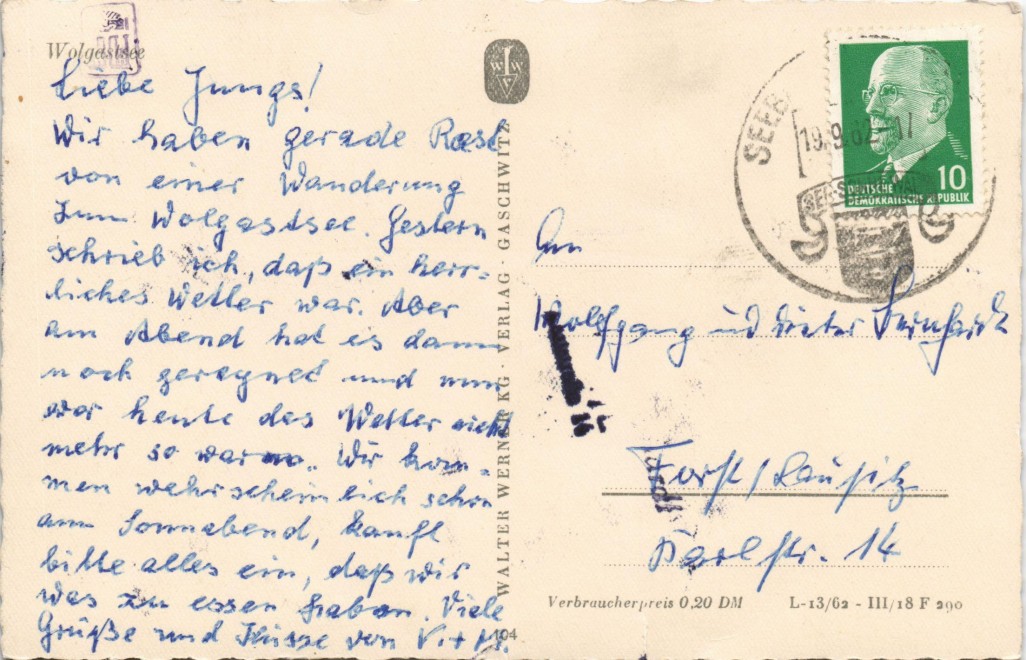 Wolgastsee
Liebe Jungs!
Wir haben gerade Rast
von einer Wanderung
zum Wolgastsee. Gestern
schrieb ich, daß ein herr-
liches Wetter war. Aber
am Abend hat es dann
noch geregnet und nun
war heute das Wetter nicht
mehr so warm. Wir kom-
men wahrscheinlich schon
am Sonnabend, kauft
bitte alles ein, daß wir
was zu essen haben. Viele
Grüße und Küsse von V. + M.
WALTER WERNER KG · VERLAG · GASCHWITZ
104
SEEB
19.9.62-17
DEUTSCHE
DEMOKRATISCHE REPUBLIK
10
An
Wolfgang und Dieter Bernhardt
Forst/Lausitz
Karlstr. 14
Verbraucherpreis 0,20 DM L-13/62 - III/18 F 290